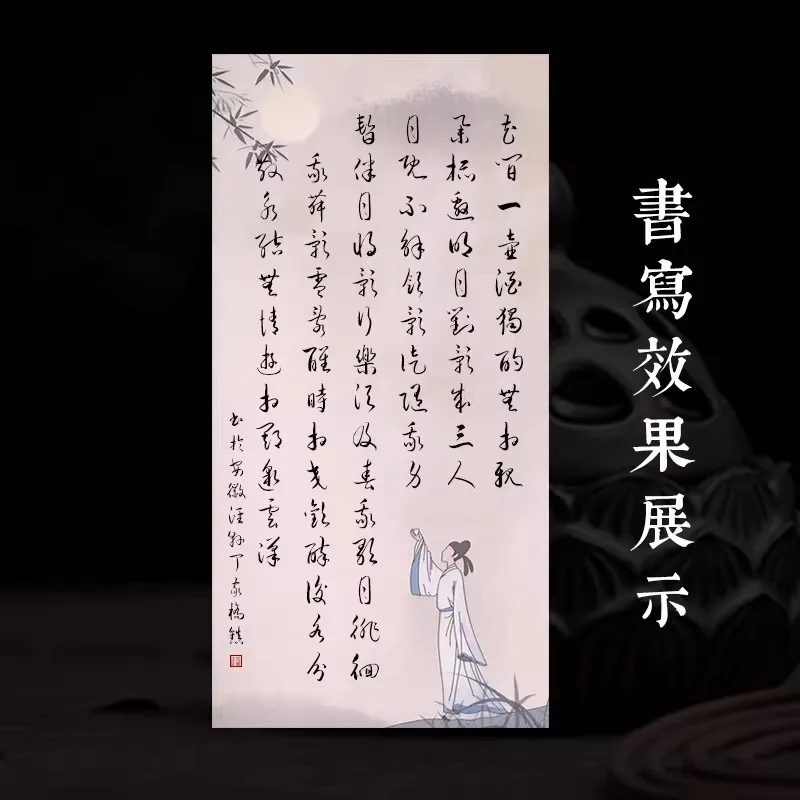 書寫效果展示
花間一壺酒獨酌無相親
舉杯邀明月對影成三人
月既不解飲影徒隨我身
暫伴月將影行樂須及春我歌月徘徊
我舞影零亂醒時相交歡醉後各分
散永結無情遊相期邈雲漢
書於安徽涇縣丁家橋鎮